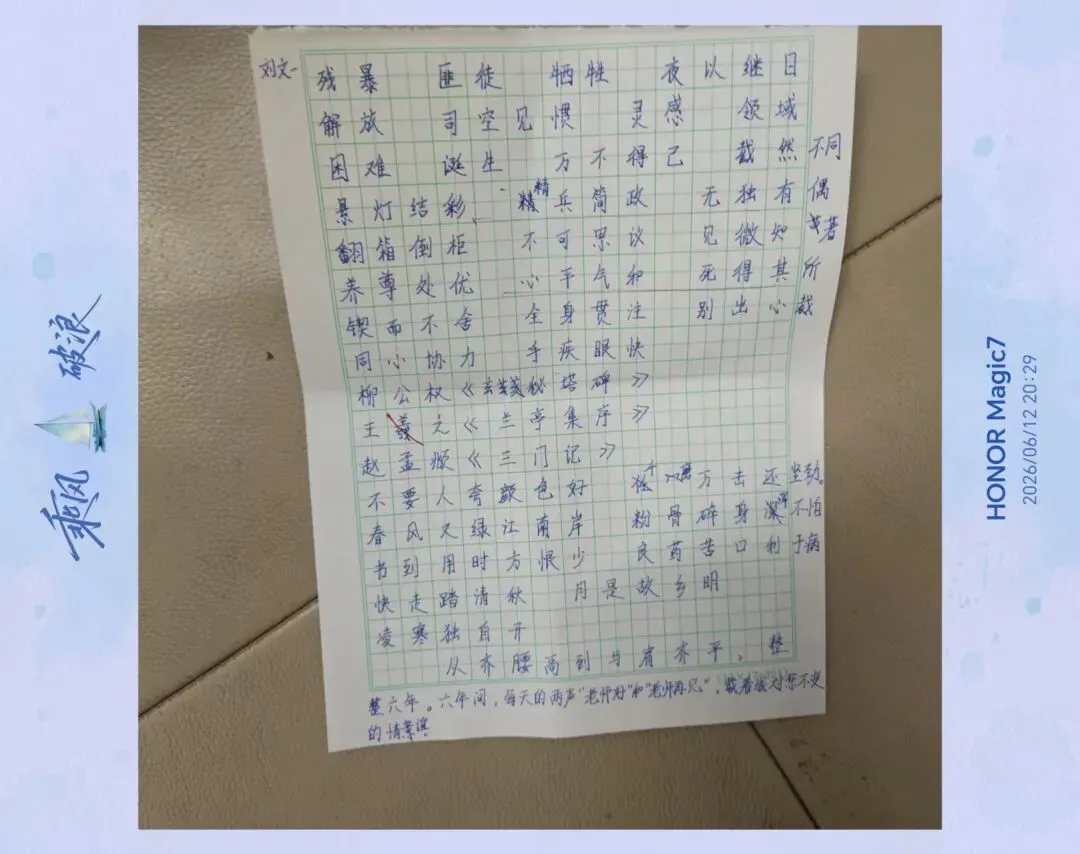 刘文一
残暴 匪徒 牺牲 夜以继日
解放 司空见惯 灵感 领域
困难 诞生 万不得已 截然不同
景灯结彩 精精兵简政 无独有偶
翻箱倒柜 不可思议 见微知著
养尊处优 心平气和 死得其所
锲而不舍 全身贯注 别出心裁
同心协力 手疾眼快
柳公权《玄秘塔碑》
王羲之《兰亭集序》
赵孟頫《三门记》
不要人夸颜色好 千 磨万击还坚劲。
春风又绿江南岸 粉骨碎身浑不怕
书到用时方恨少 良药苦口利于病
快走踏清秋 月是故乡明
凌寒独自开
从齐腰高到与肩齐平，整
整六年。六年间，每天的两声“老师好”和“老师再见”，载着我对您不变
的情
乘风 破浪
HONOR Magic7
2026/06/12 20:29